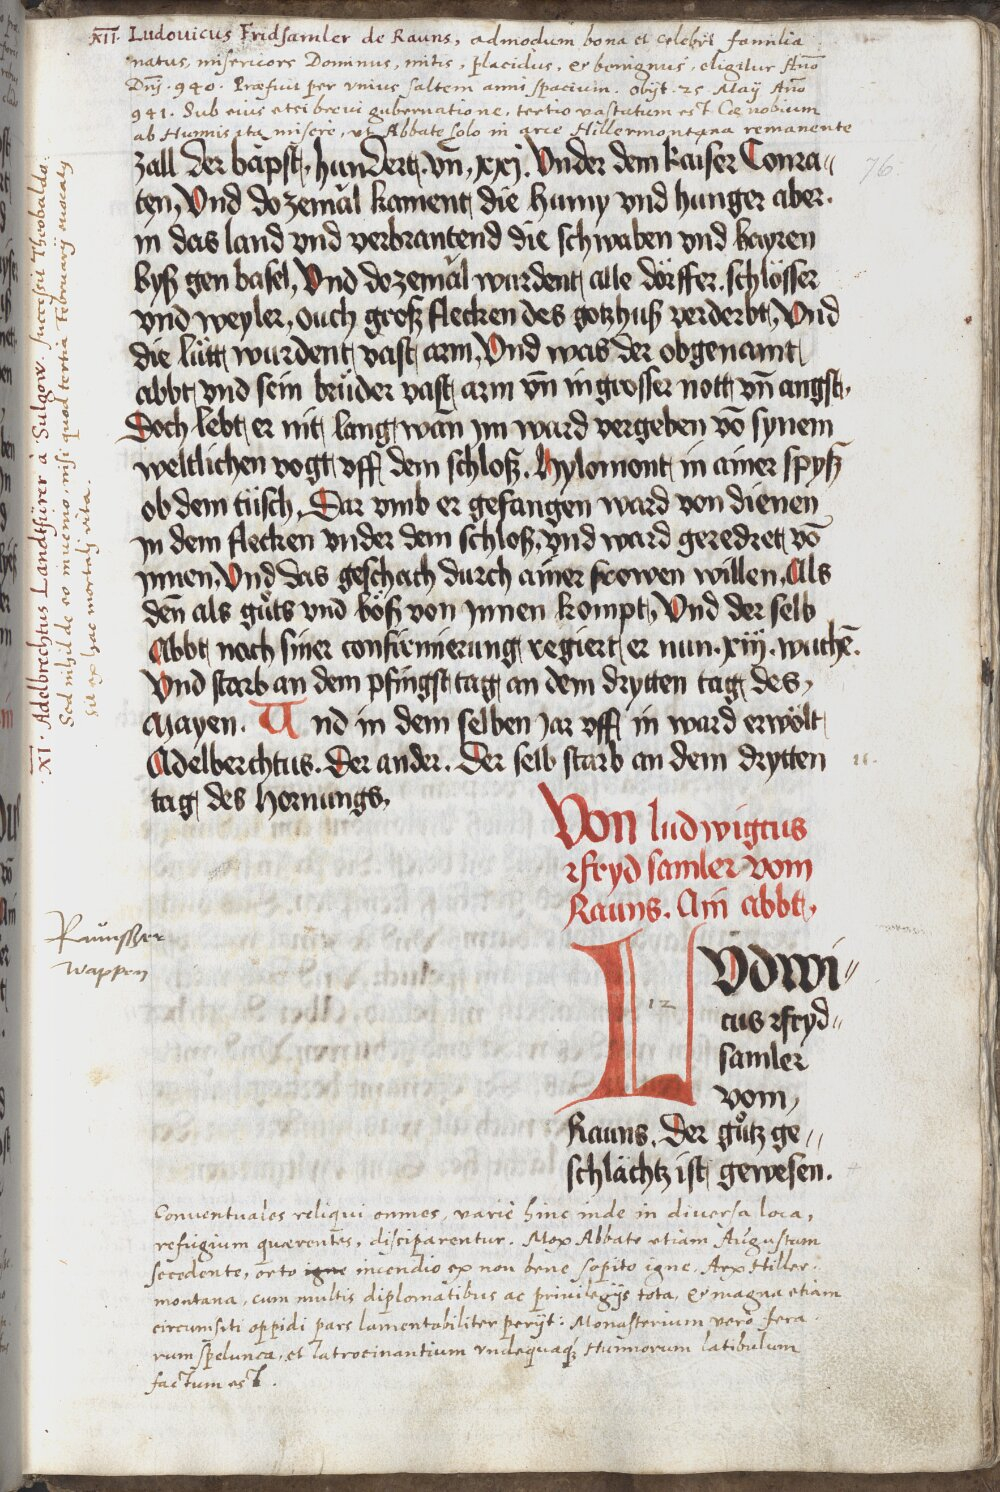 XII. Ludouicus Fridsamler de Rauns, admodum bona et celebri familia
natus, misericors Dominus, mitis, placidus, et benignus, eligitur Año
Dnj. 940. Præfuit per vnius saltem anni spacium. obijt. 25. Maij Año
941. Sub eius etsi brevi gubernatione, tertio vastatum est Cœnobium
ab Hunnis ita misere, vt Abbate solo in arce Hillermontana remanente
76.
zall der bäpst, hundert. vn̄, xxj. Vnder dem kaiser Conra〃
ten, Vnd do zemäl kament die huny vnd hunger aber.
in das land vnd verbrantend die schwaben vnd bayren
byß gen basel, Vnd dozemäl wurdent alle dörffer. schlösser
vnd weyler, ouch groß flecken des gotzhuß verderbt, Vnd
die lütt wurdent vast arm, Vnd was der obgenamt
abbt vnd sein brüder vast arm vn̄ in grosser nott vn̄ angst,
Doch lebt er nit lang, wan jm ward vergeben vō synem
weltlichen vogt vff dem schloß. hylomont in ainer spyß
ob dem tüsch, Dar vmb er gefangen ward von dienen
jn dem flecken vnder dem schloß, vnd ward geredret vō
jnnen, Vnd das geschach durch ainer frowen willen, Als
den̄ als gůts vnd böß von jnnen kompt, Vnd der selb
Abbt noch siner confirmierung regiert er nun. xiij. wuchē.
Vnd starb an dem pfingst tag an dem drytten tag des,
Mayen. Vnd in dem selben jar vff in ward erwölt
Adelberchtus. Der ander. Der selb starb an dem drytten
tag des hornungs,
11.
XI. Adelbrechtus Landtfürer à Sulgow. successit Theobaldo.
Sed nihil de eo inuenio, nisi quod tertia Februarij euocatus
sit ex hac mortali vita.
Von ludwigtus
rfryd samler vom
Rauns. Ain abbt,
Raünsser
wappen
12
LVDwi〃
cus rfryd〃
samler
vom,
Rauns. Der gůtz ge〃
schlächtz ist gewesen.
Conventuales reliqui omnes, varie hinc inde in diversa loca,
refugium quærentes, disciparentur. Mox Abbate etiam Augustam
secedente, orto igne incendio ex non bene sopito igne, Arx Hiller
montana, cum multis diplomatibus ac privilegijs tota, et magna etiam
circumsiti oppidi pars lamentabiliter perijt: Monasterium vero fera
rum spelunca, et latrocinantium vndequaq́; Hunnorum latibulum
factum est.